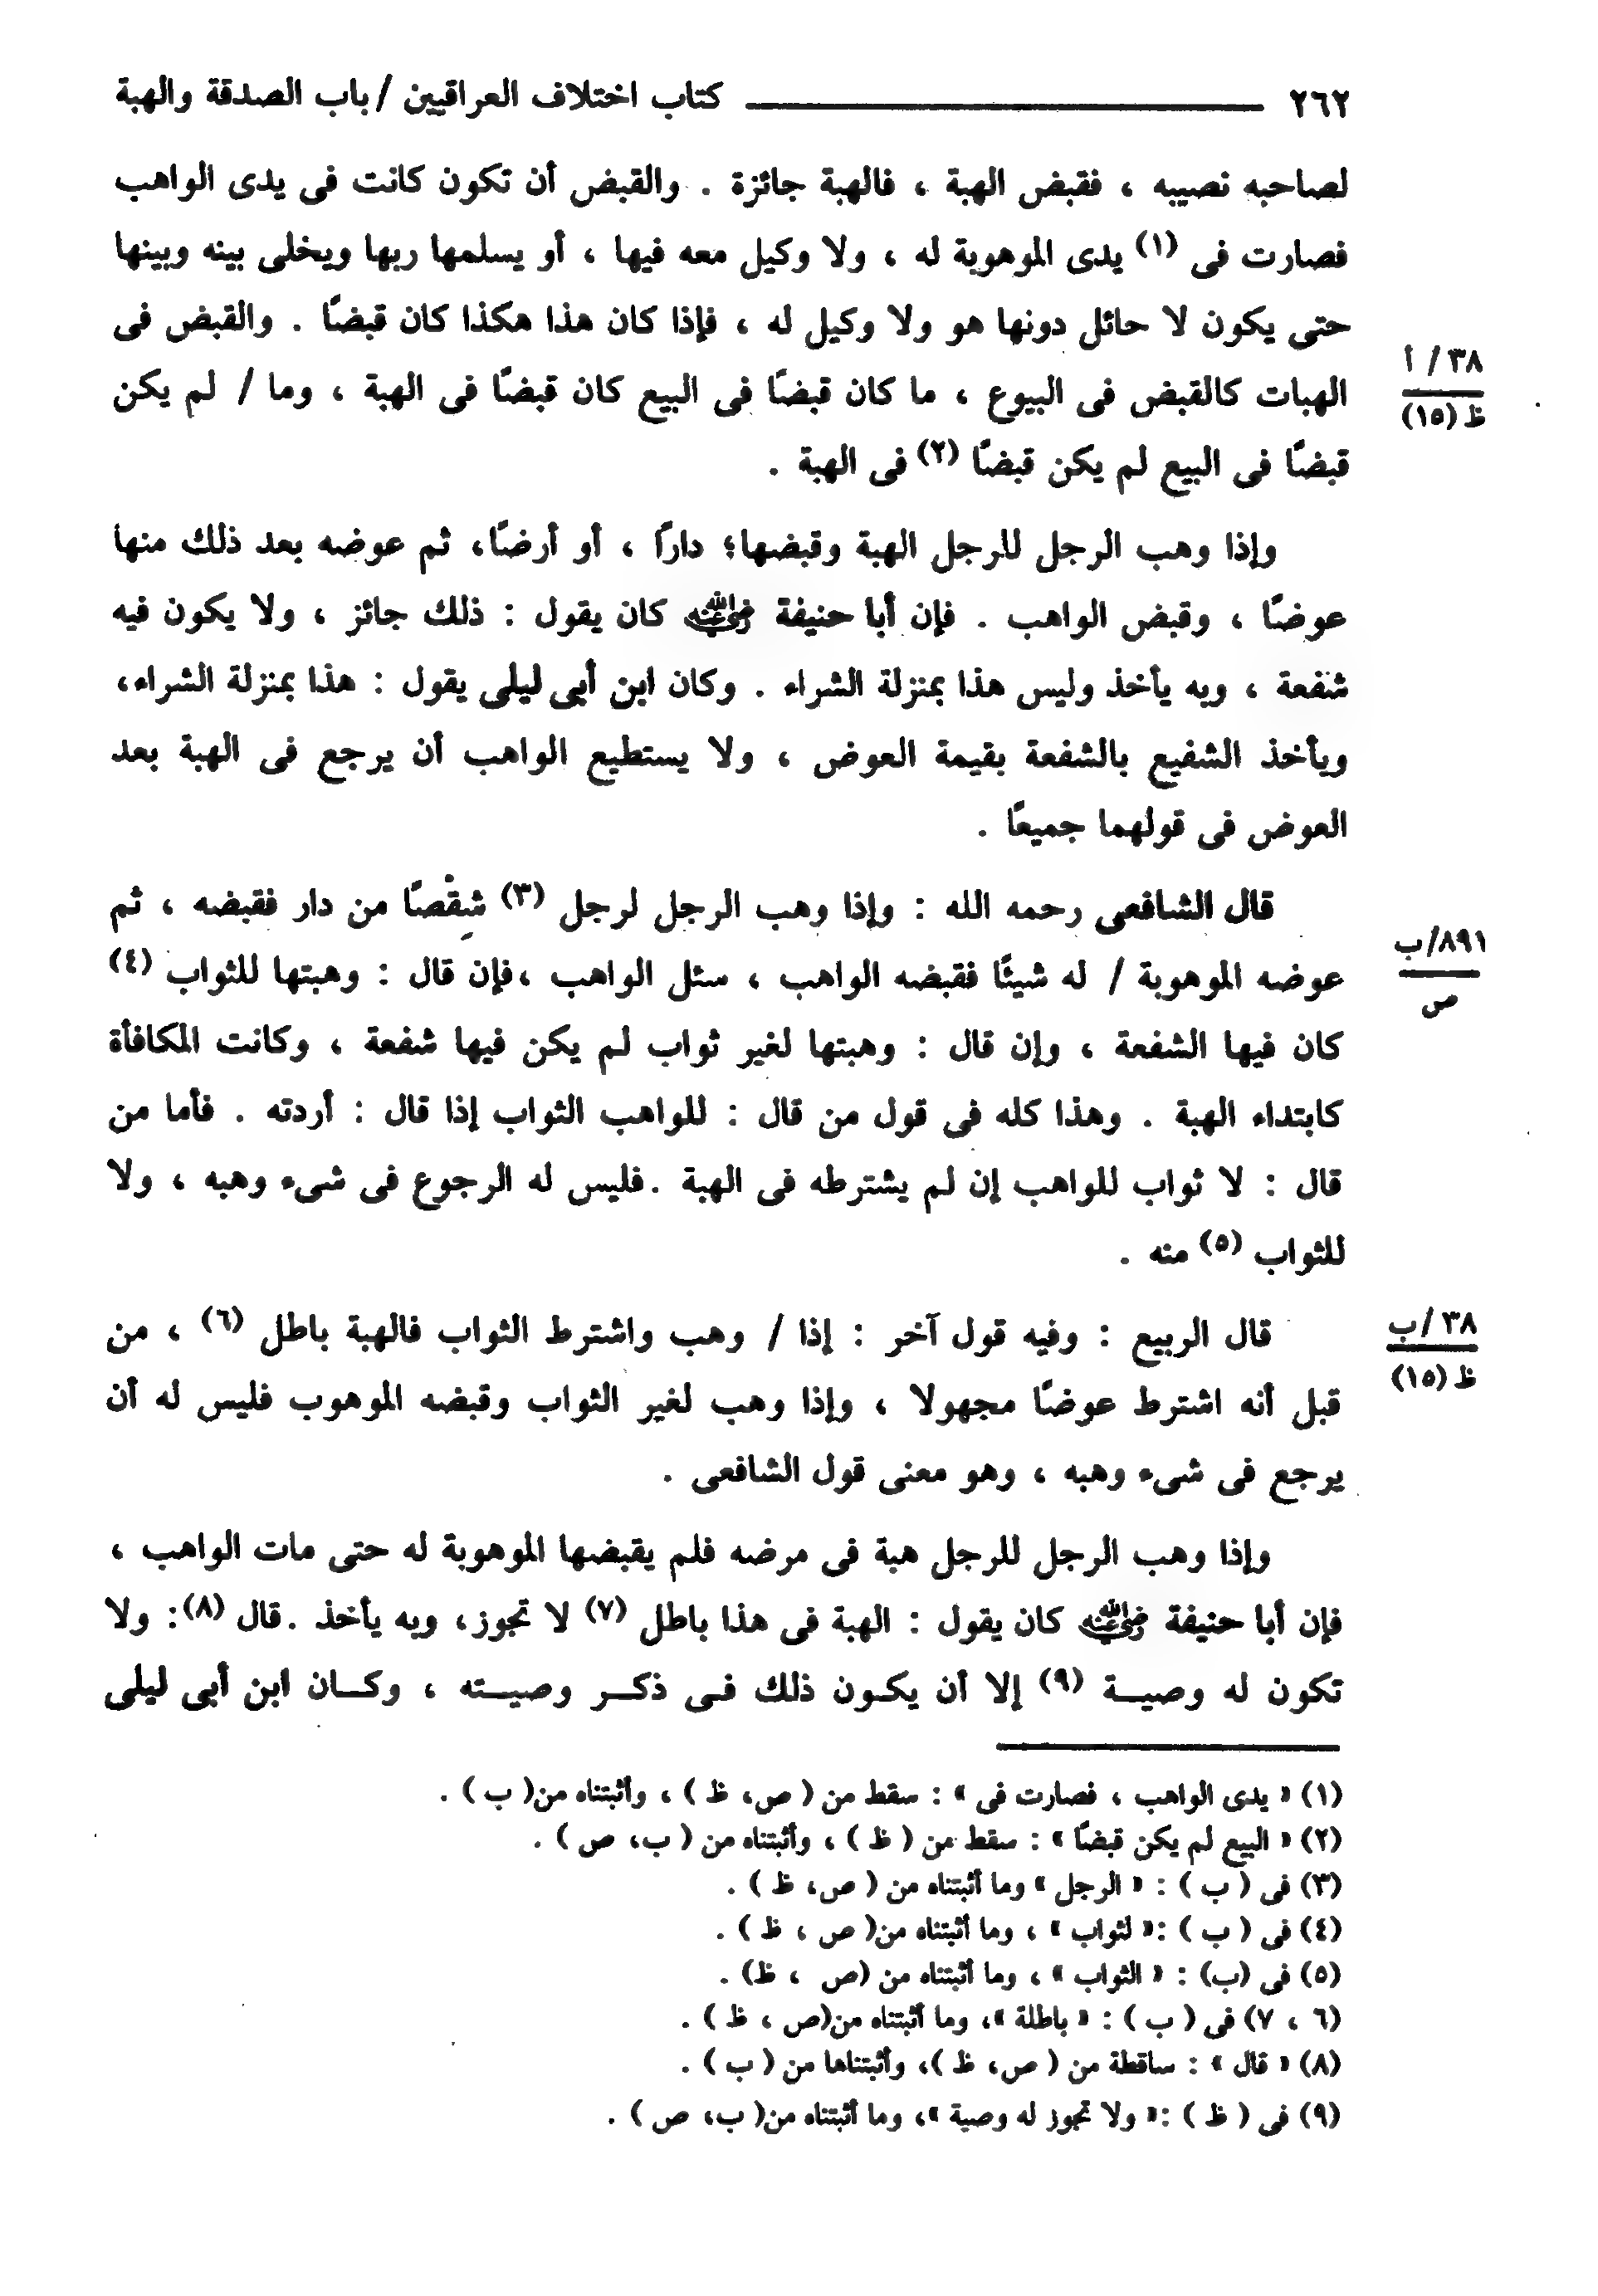 ٢٦٢ كتاب اختلاف العراقيين / باب الصدقة والهبة
لصاحبه نصيبه ، فقبض الهبة ، فالهبة جائزة . والقبض أن تكون كانت فى يدى الواهب
فصارت فى (١) يدى الموهوبة له ، ولا وكيل معه فيها ، أو يسلمها ربها ويخلى بينه وبينها
حتى يكون لا حائل دونها هو ولا وكيل له ، فإذا كان هذا هكذا كان قبضًا . والقبض فى
٣٨ / أ
ظ (١٥)
الهبات كالقبض فى البيوع ، ما كان قبضًا فى البيع كان قبضًا فى الهبة ، وما / لم يكن
قبضًا فى البيع لم يكن قبضًا (٢) فى الهبة .
وإذا وهب الرجل للرجل الهبة وقبضها؛ دارًا ، أو أرضًا، ثم عوضه بعد ذلك منها
عوضًا ، وقبض الواهب . فإن أبا حنيفة رضي الله عنه كان يقول : ذلك جائز ، ولا يكون فيه
شفعة ، وبه يأخذ وليس هذا بمنزلة الشراء . وكان ابن أبى ليلى يقول : هذا بمنزلة الشراء،
ويأخذ الشفيع بالشفعة بقيمة العوض ، ولا يستطيع الواهب أن يرجع فى الهبة بعد
العوض فى قولهما جميعًا .
قال الشافعى رحمه الله : وإذا وهب الرجل لرجل (٣) شِقْصًا من دار فقبضه ، ثم
٨٩١/ب
ص
عوضه الموهوبة / له شيئًا فقبضه الواهب ، سئل الواهب ،فإن قال : وهبتها للثواب (٤)
كان فيها الشفعة ، وإن قال : وهبتها لغير ثواب لم يكن فيها شفعة ، وكانت المكافأة
كابتداء الهبة . وهذا كله فى قول من قال : للواهب الثواب إذا قال : أردته . فأما من
قال : لا ثواب للواهب إن لم يشترطه فى الهبة .فليس له الرجوع فى شىء وهبه ، ولا
للثواب (٥) منه .
قال الربيع : وفيه قول آخر : إذا / وهب واشترط الثواب فالهبة باطل (٦) ، من
٣٨ /ب
ظ (١٥)
قبل أنه اشترط عوضًا مجهولا ، وإذا وهب لغير الثواب وقبضه الموهوب فليس له أن
يرجع فى شىء وهبه ، وهو معنى قول الشافعى .
وإذا وهب الرجل للرجل هبة فى مرضه فلم يقبضها الموهوبة له حتى مات الواهب ،
فإن أبا حنيفة رضي الله عنه كان يقول : الهبة فى هذا باطل (٧) لا تجوز، وبه يأخذ .قال (٨): ولا
تكون له وصيـــة (٩) إلا أن يكـون ذلك فـى ذكــر وصيــته ، وكــان ابن أبى ليلى
(١) « يدى الواهب ، فصارت فى » : سقط من ( ص، ظ ) ، وأثبتناه من( ب ) .
(٢) « البيع لم يكن قبضًا » : سقط من ( ظ ) ، وأثبتناه من ( ب، ص ) .
(٣) فى ( ب ) : « الرجل » وما أثبتناه من ( ص، ظ ) .
(٤) فى ( ب ) :« لثواب » ، وما أثبتناه من( ص ، ظ ) .
(٥) فى (ب) : « الثواب » ، وما أثبتناه من (ص ، ظ) .
(٦ ، ٧) فى ( ب ) : « باطلة »، وما أثبتناه من(ص ، ظ ) .
(٨) « قال » : ساقطة من ( ص، ظ )، وأثبتناها من ( ب ) .
(٩) فى ( ظ ) :« ولا تجوز له وصية »، وما أثبتناه من( ب، ص ) .